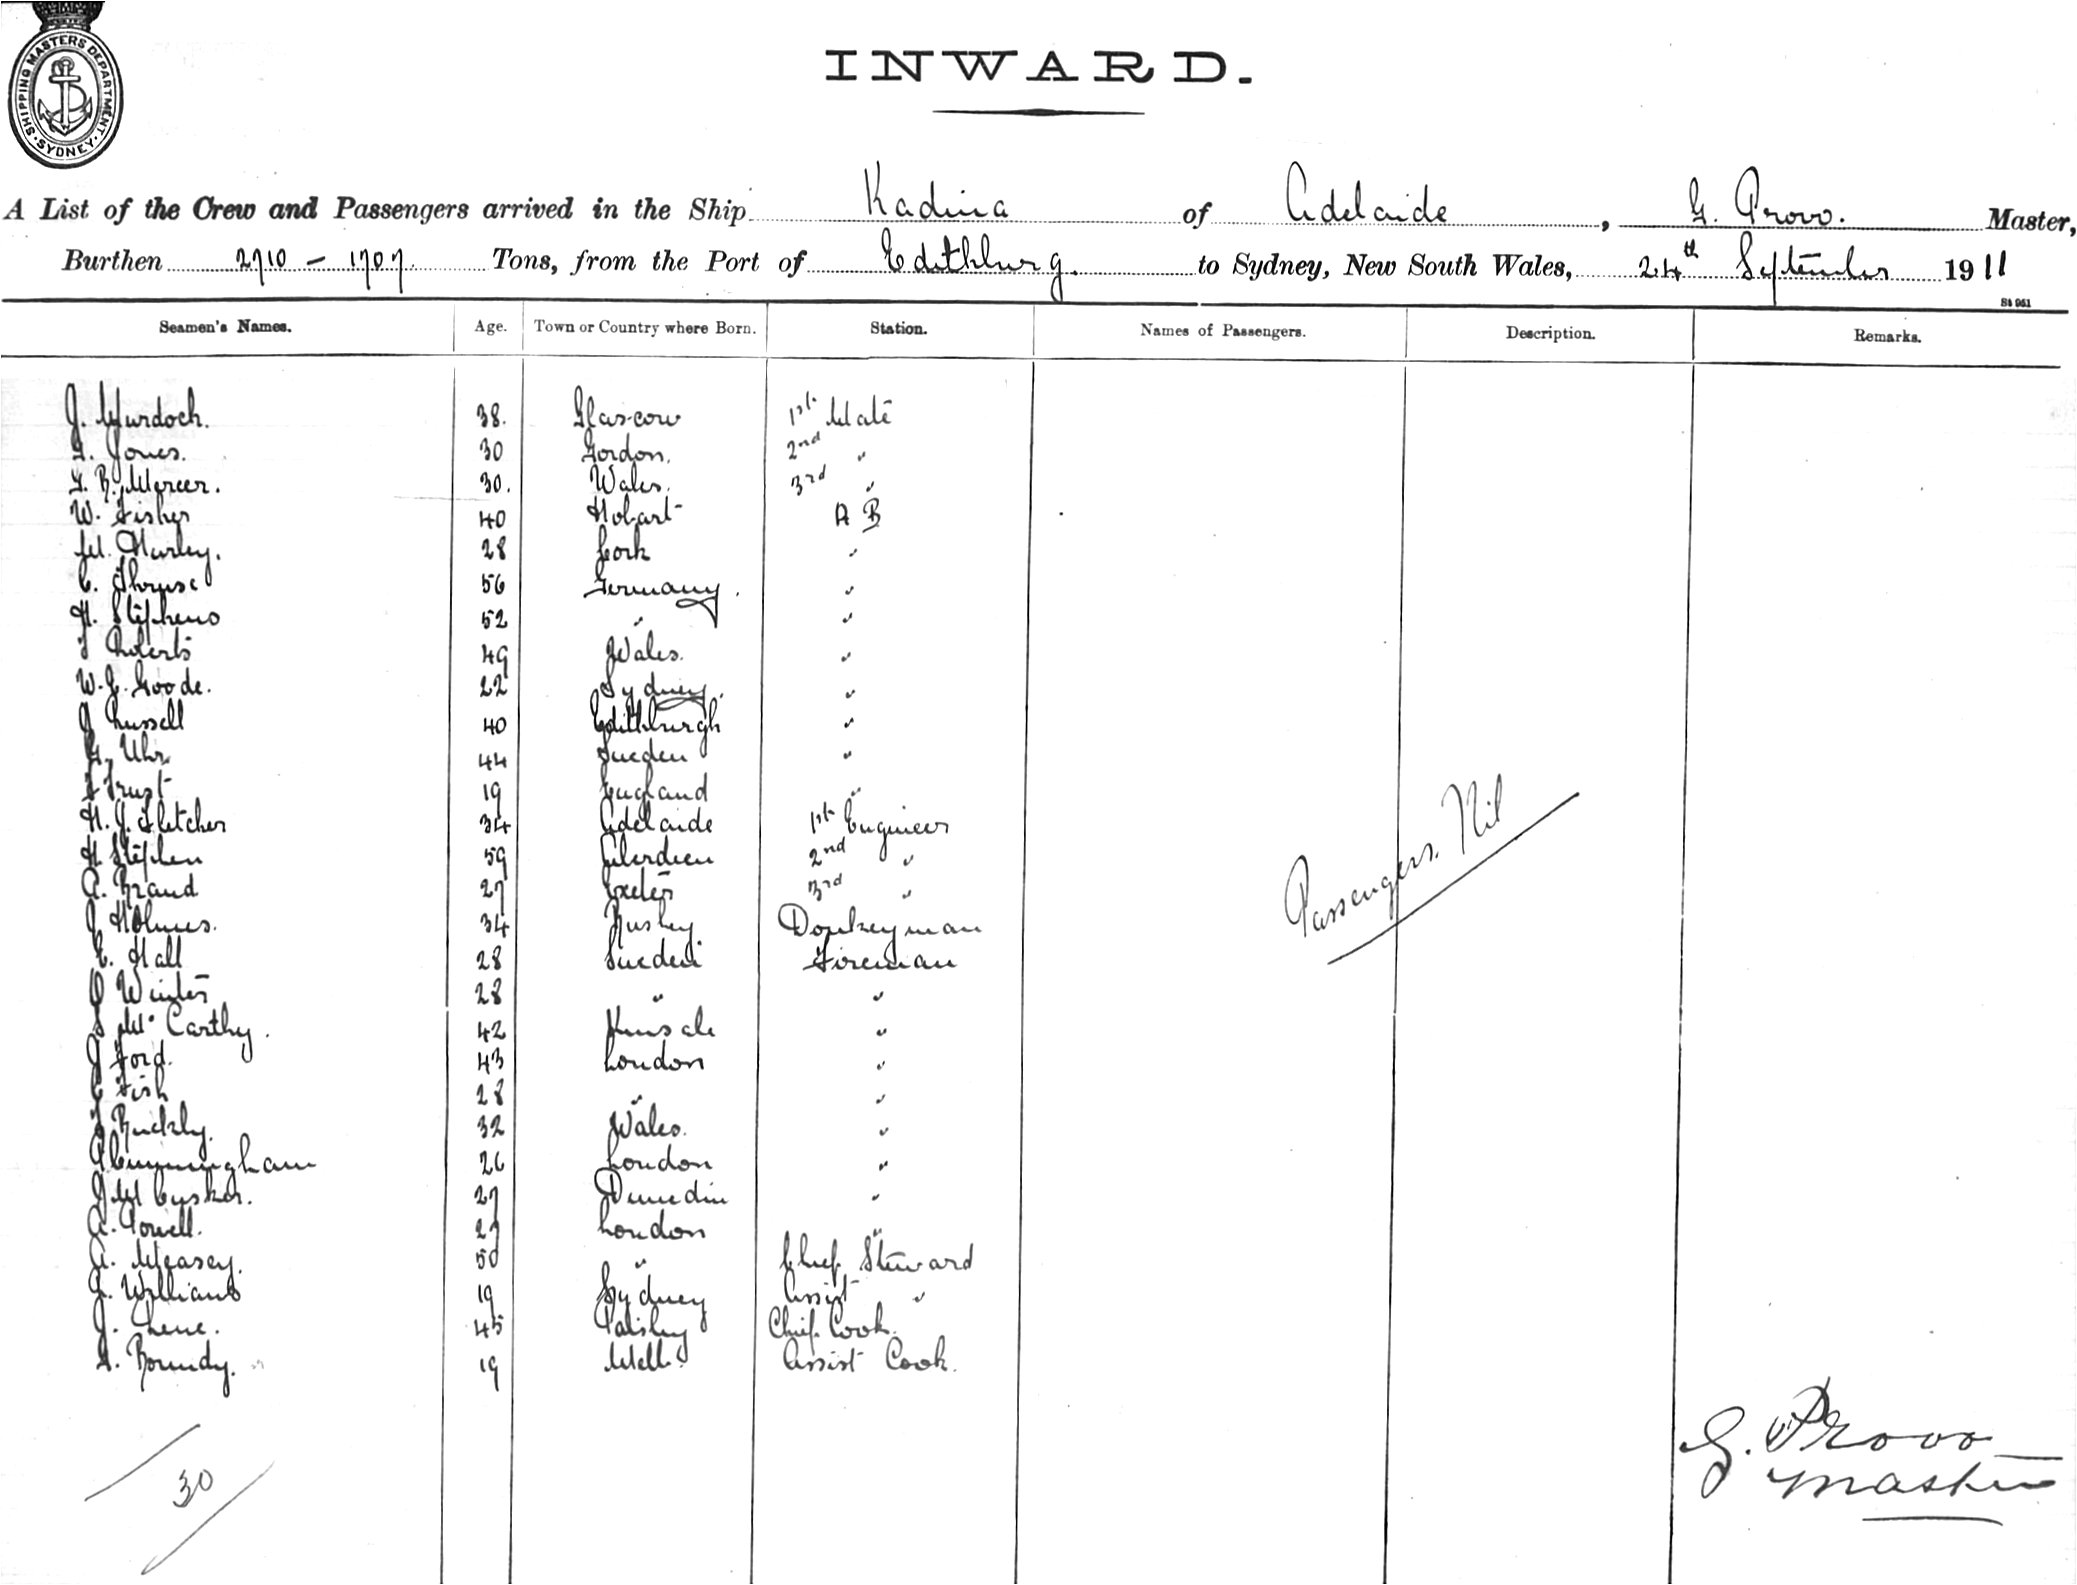 SHIPPING MASTERS DEPARTMENT. SYDNEY.
INWARD.
A List of the Crew and Passengers arrived in the Ship Kadina of Adelaide, G. Provo. Master,
Burthen 2710 - 1707 Tons, from the Port of Edithburg. to Sydney, New South Wales, 24th September 1911
St 961
Seamen's Names. Age. Town or Country where Born. Station. Names of Passengers. Description. Remarks.
J. Murdoch. 38. Glascow 1st Mate
G. Jones. 30 Gordon. 2nd "
G. R. Mercer. 30. Wales. 3rd "
W. Fisher 40 Hobart A B
M. Hurley. 28 Cork "
C. 56 Germany. "
H. Stephens 52 " "
J Roberts 49 Wales. "
W. J. Goode. 22 Sydney. "
J Russell 40 Edithburgh "
G. Uhr. 44 Sueden "
J Trust 19 England "
H. J. Fletcher 34 Adelaide 1st Engineer
H Stephen 59 Aberdeen 2nd "
A. Brand 27 Exeter 3rd "
J Holmes. 34 Donkeyman
E. Hall 28 Sueden Fireman
J Winter 28 " "
S McCarthy. 42 Kinsale "
J Ford. 43 London "
C Fish 28 " "
J Buckly. 32 Wales. "
P Cunningham 26 London "
J McCusker. 27 Dunedin "
A. Powell. 27 London "
A. Measey. 50 " Chief Steward
G. Williams 19 Sydney Assist "
J. 45 Paisley Chief Cook.
G. Roundy. 19 Melb. Assist Cook.
Passengers. Nil
G. Provo
Master
30